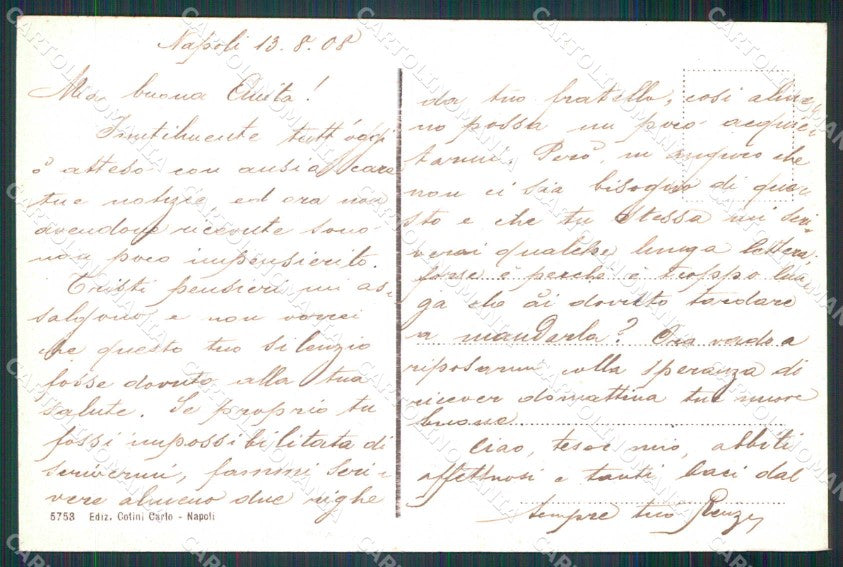 Napoli 13.8.08
Mia buona Anita!
Inutilmente tutt'oggi
ò atteso con ansia care
tue notizie, ed ora non
avendone ricevute sono
non poco impensierito.
Tristi pensieri mi as-
salgono e non vorrei
che questo tuo silenzio
fosse dovuto alla tua
salute. Se proprio tu
fossi impossibilitata di
scrivermi, fammi scri-
vere almeno due righe
5753 Ediz. Cotini Carlo - Napoli
da tuo fratello, così alme-
no possa un poco acquie-
tarmi. Però, m'auguro che
non ci sia bisogno di que-
sto e che tu stessa mi scri-
verai qualche lunga lettera,
forse è perchè è troppo lun-
ga che ài dovuto tardare
a mandarla? Ora vado a
riposarmi colla speranza di
ricever domattina tue nuove
buone.
Ciao, tesor mio, abbiti
affettuosi e tanti baci dal
sempre tuo Renzo
CARTOLINOMANIA